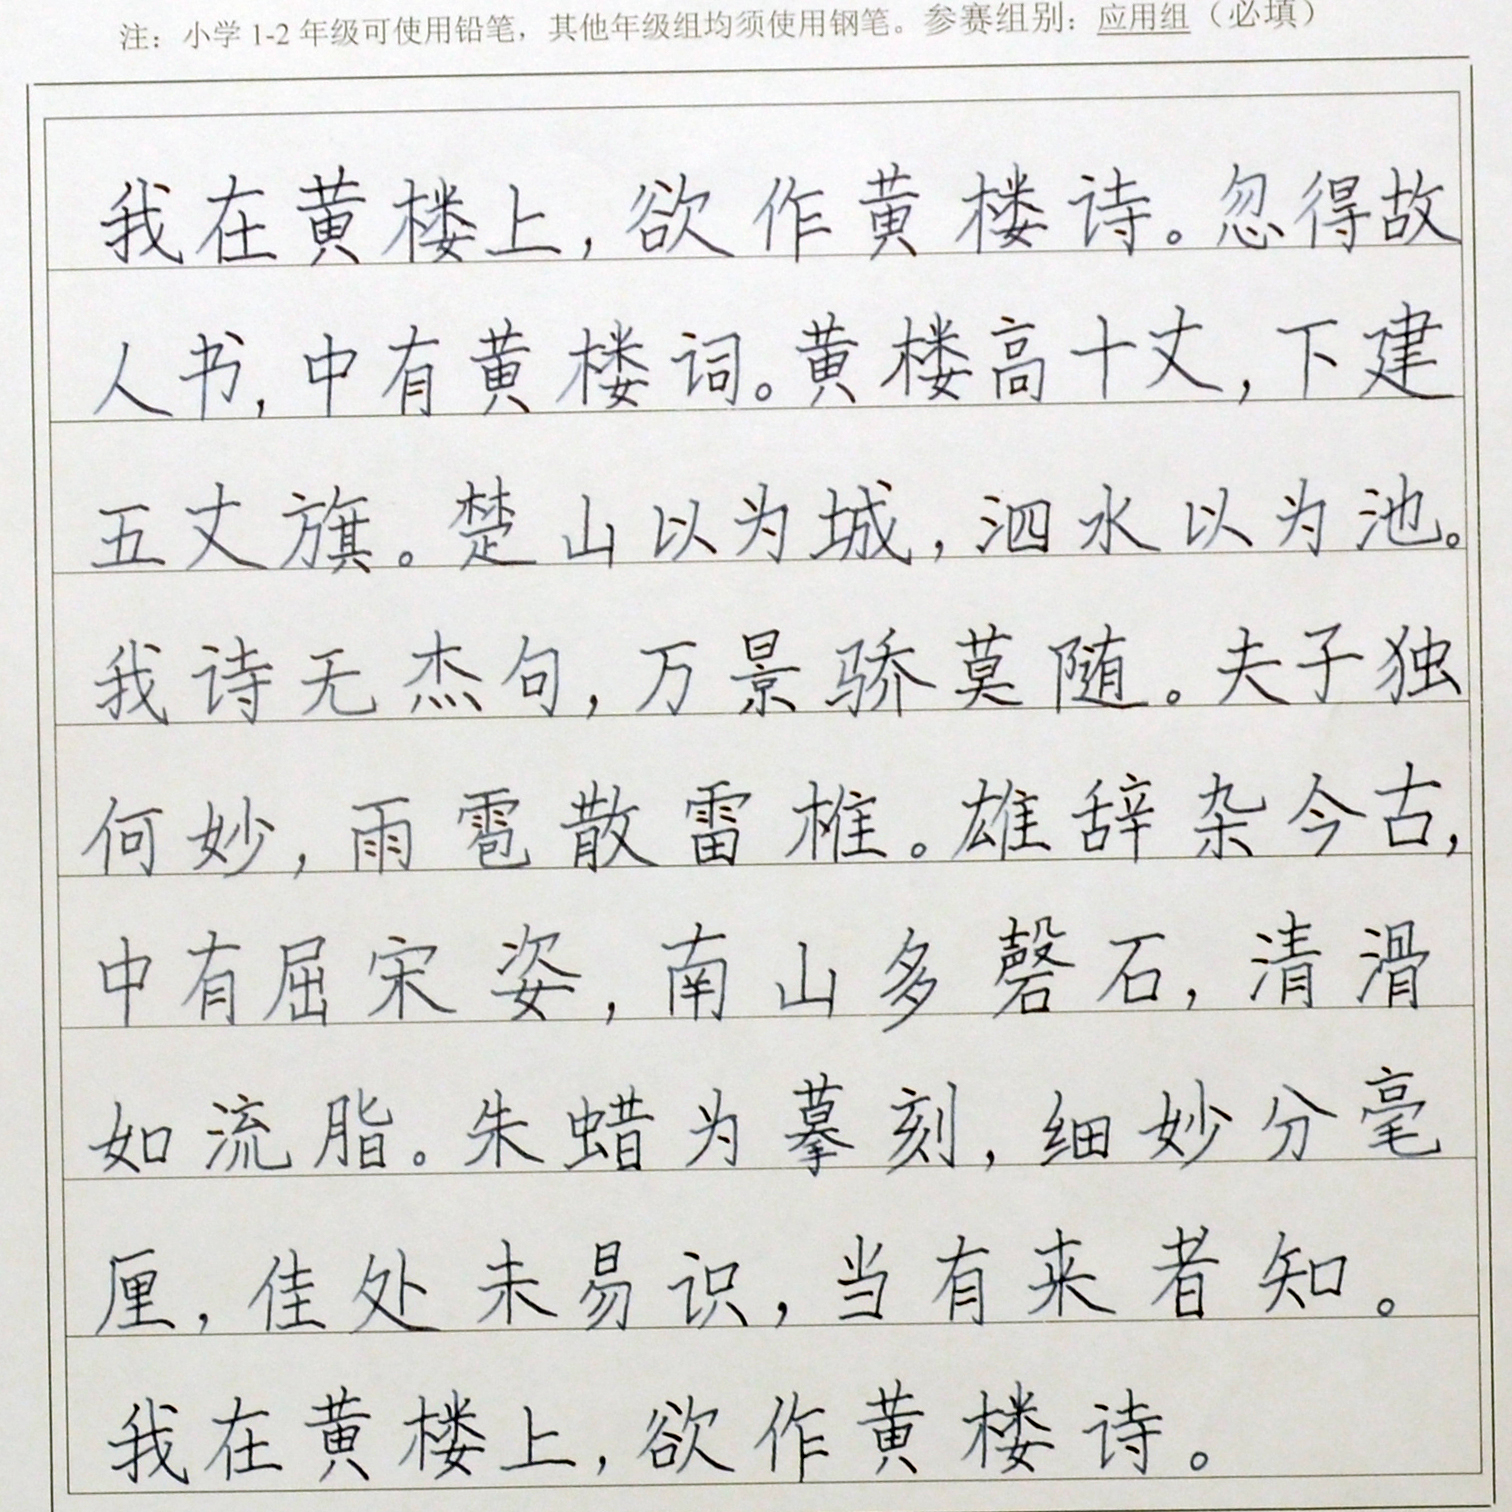 注：小学 1-2 年级可使用铅笔，其他年级组均须使用钢笔。参赛组别：应用组（必填）
我在黄楼上，欲作黄楼诗。忽得故
人书，中有黄楼词。黄楼高十丈，下建
五丈旗。楚山以为城，泗水以为池。
我诗无杰句，万景骄莫随。夫子独
何妙，雨雹散雷椎。雄辞杂今古，
中有屈宋姿，南山多磬石，清滑
如流脂。朱蜡为摹刻，细妙分毫
厘，佳处未易识，当有来者知。
我在黄楼上，欲作黄楼诗。